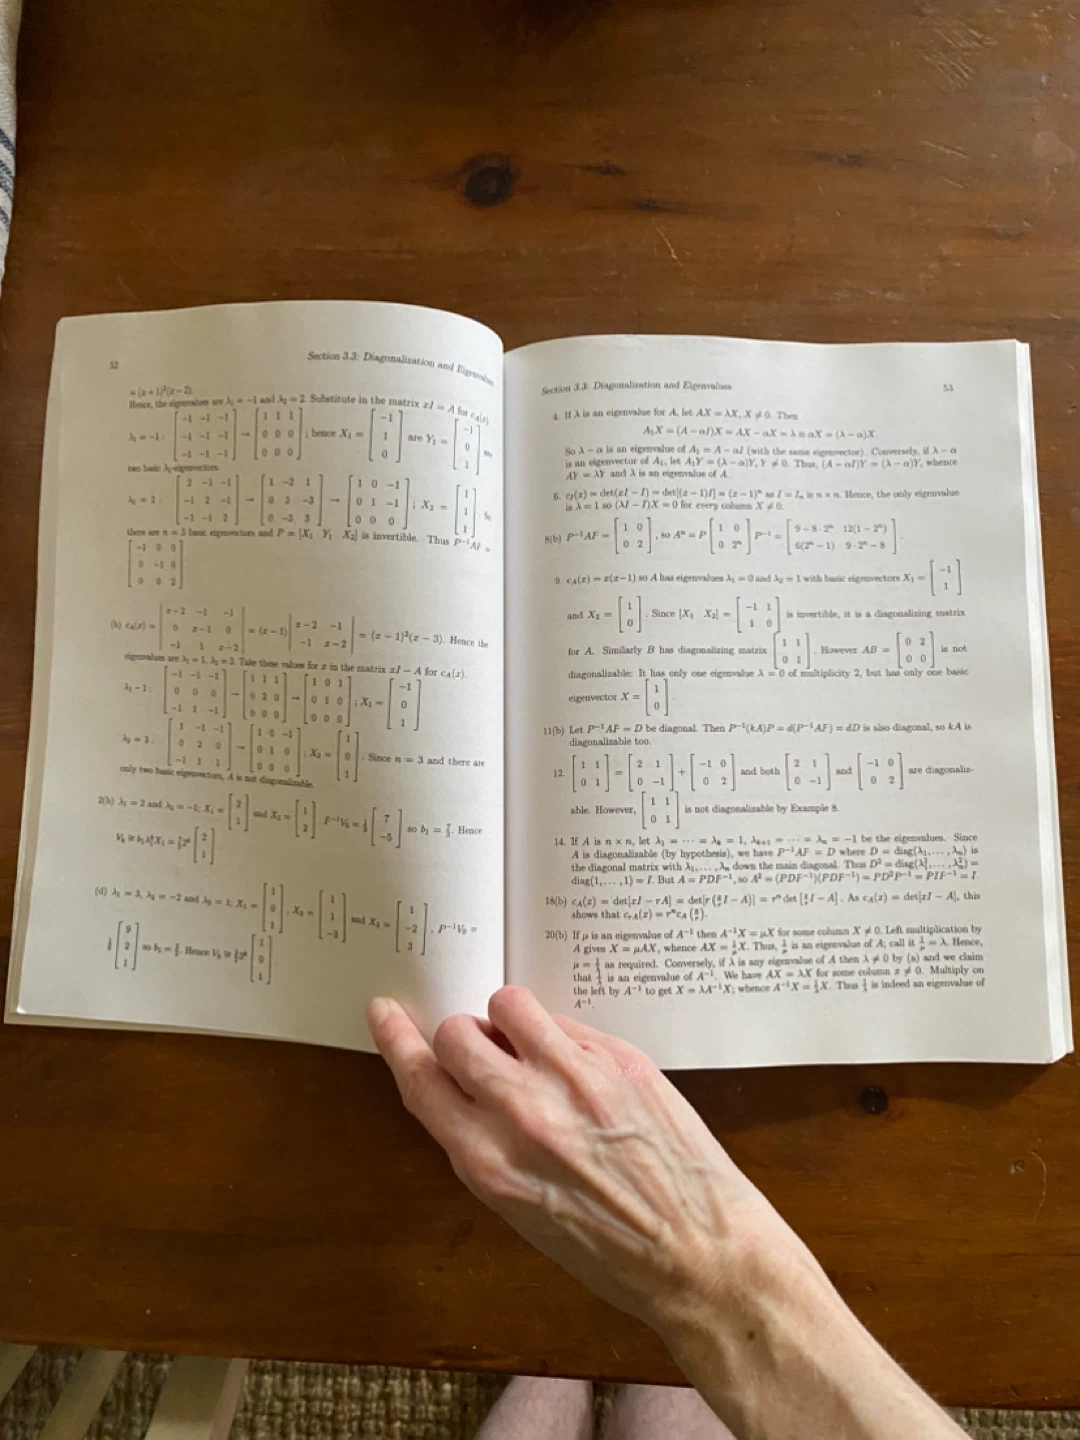 52
Section 3.3: Diagonalization and Eigenvalues
= (x + 1)²(x − 2).
Hence, the eigenvalues are λ₁ = −1 and λ₂ = 2. Substitute in the matrix xI − A for c_A(x).
λ₁ = −1 : [−1 −1 −1; −1 −1 −1; −1 −1 −1] → [1 1 1; 0 0 0; 0 0 0] ; hence X₁ = [−1; 1; 0] are Y₁ = [−1; 0; 1] are
two basic λ₁-eigenvectors.
λ₂ = 2 : [2 −1 −1; −1 2 −1; −1 −1 2] → [1 −2 1; 0 3 −3; 0 −3 3] → [1 0 −1; 0 1 −1; 0 0 0] ; X₂ = [1; 1; 1]. So
there are n = 3 basic eigenvectors and P = [X₁ Y₁ X₂] is invertible. Thus P⁻¹AP =
[−1 0 0; 0 −1 0; 0 0 2]
(h) c_A(x) = |x−2 −1 −1; 0 x−1 0; −1 1 x−2| = (x−1) |x−2 −1; −1 x−2| = (x − 1)²(x − 3). Hence the
eigenvalues are λ₁ = 1, λ₂ = 3. Take these values for x in the matrix xI − A for c_A(x).
λ₁ − 1 : [−1 −1 −1; 0 0 0; −1 1 −1] → [1 1 1; 0 2 0; 0 0 0] → [1 0 1; 0 1 0; 0 0 0] ; X₁ = [−1; 0; 1]
λ₂ = 3 : [1 −1 −1; 0 2 0; −1 1 1] → [1 0 −1; 0 1 0; 0 0 0] ; X₂ = [1; 0; 1]. Since n = 3 and there are
only two basic eigenvectors, A is not diagonalizable.
2(b) λ₁ = 2 and λ₂ = −1; X₁ = [2; 1] and X₂ = [1; 2]. P⁻¹V₀ = ⅓ [7; −5] so b₁ = 7/3. Hence
V_k ≅ b₁λ₁ᵏX₁ = 7/3 2ᵏ [2; 1]
(d) λ₁ = 3, λ₂ = −2 and λ₃ = 1; X₁ = [1; 0; 1], X₂ = [1; 1; −3] and X₃ = [1; −2; 3]. P⁻¹V₀ =
[9; 2; 1] so b₁ = 3/2. Hence V_k ≅ [1; 0; 1].
Section 3.3: Diagonalization and Eigenvalues
53
4. If λ is an eigenvalue for A, let AX = λX, X ≠ 0. Then
A₁X = (A − αI)X = AX − αX = λ αX = (λ − α)X.
So λ − α is an eigenvalue of A₁ = A − αI (with the same eigenvector). Conversely, if λ − α
is an eigenvector of A₁, let A₁Y = (λ − α)Y, Y ≠ 0. Thus, (A − αI)Y = (λ − α)Y, whence
AY = λY and λ is an eigenvalue of A.
6. c_I(x) = det(xI − I) = det[(x − 1)I] = (x − 1)ⁿ as I = Iₙ is n × n. Hence, the only eigenvalue
is λ = 1 so (λI − I)X = 0 for every column X ≠ 0.
8(b) P⁻¹AP = [1 0; 0 2], so Aⁿ = P [1 0; 0 2ⁿ] P⁻¹ = [9 − 8 · 2ⁿ 12(1 − 2ⁿ); 6(2ⁿ − 1) 9 · 2ⁿ − 8].
9. c_A(x) = x(x−1) so A has eigenvalues λ₁ = 0 and λ₂ = 1 with basic eigenvectors X₁ = [−1; 1]
and X₂ = [1; 0]. Since [X₁ X₂] = [−1 1; 1 0] is invertible, it is a diagonalizing matrix
for A. Similarly B has diagonalizing matrix [1 1; 0 1]. However AB = [0 2; 0 0] is not
diagonalizable: It has only one eigenvalue λ = 0 of multiplicity 2, but has only one basic
eigenvector X = [1; 0].
11(b) Let P⁻¹AP = D be diagonal. Then P⁻¹(kA)P = d(P⁻¹AP) = dD is also diagonal, so kA is
diagonalizable too.
12. [1 1; 0 1] = [2 1; 0 −1] + [−1 0; 0 2] and both [2 1; 0 −1] and [−1 0; 0 2] are diagonaliz-
able. However, [1 1; 0 1] is not diagonalizable by Example 8.
14. If A is n × n, let λ₁ = ··· = λ_k = 1, λ_{k+1} = ··· = λₙ = −1 be the eigenvalues. Since
A is diagonalizable (by hypothesis), we have P⁻¹AP = D where D = diag(λ₁, . . . , λₙ) is
the diagonal matrix with λ₁, . . . , λₙ down the main diagonal. Thus D² = diag(λ₁², . . . , λₙ²) =
diag(1, . . . , 1) = I. But A = PDP⁻¹, so A² = (PDP⁻¹)(PDP⁻¹) = PD²P⁻¹ = PIP⁻¹ = I.
18(b) c_A(x) = det[xI − rA] = det[r (x/r I − A)] = rⁿ det [x/r I − A]. As c_A(x) = det[xI − A], this
shows that c_{rA}(x) = rⁿc_A (x/r).
20(b) If μ is an eigenvalue of A⁻¹ then A⁻¹X = μX for some column X ≠ 0. Left multiplication by
A gives X = μAX, whence AX = 1/μ X. Thus, 1/μ is an eigenvalue of A; call it 1/μ = λ. Hence,
μ = 1/λ as required. Conversely, if λ is any eigenvalue of A then λ ≠ 0 by (a) and we claim
that 1/λ is an eigenvalue of A⁻¹. We have AX = λX for some column x ≠ 0. Multiply on
the left by A⁻¹ to get X = λA⁻¹X; whence A⁻¹X = 1/λ X. Thus 1/λ is indeed an eigenvalue of
A⁻¹.